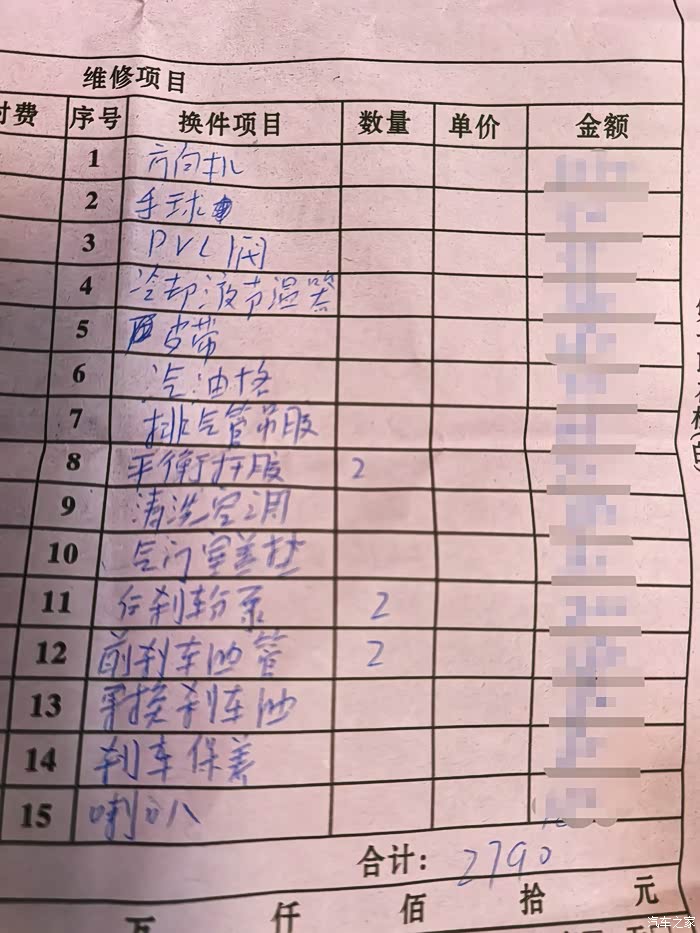 维修项目
付费 序号 换件项目 数量 单价 金额
1 方向机
2 手球
3 PVL阀
4 冷却液节温器
5 皮带
6 汽油格
7 排气管吊胶
8 平衡杆胶 2
9 清洗空调
10 气门室盖垫
11 后刹车分泵 2
12 前刹车油管 2
13 更换刹车油
14 刹车保养
15 喇叭
合计: 2790
万 仟 佰 拾 元
汽车之家